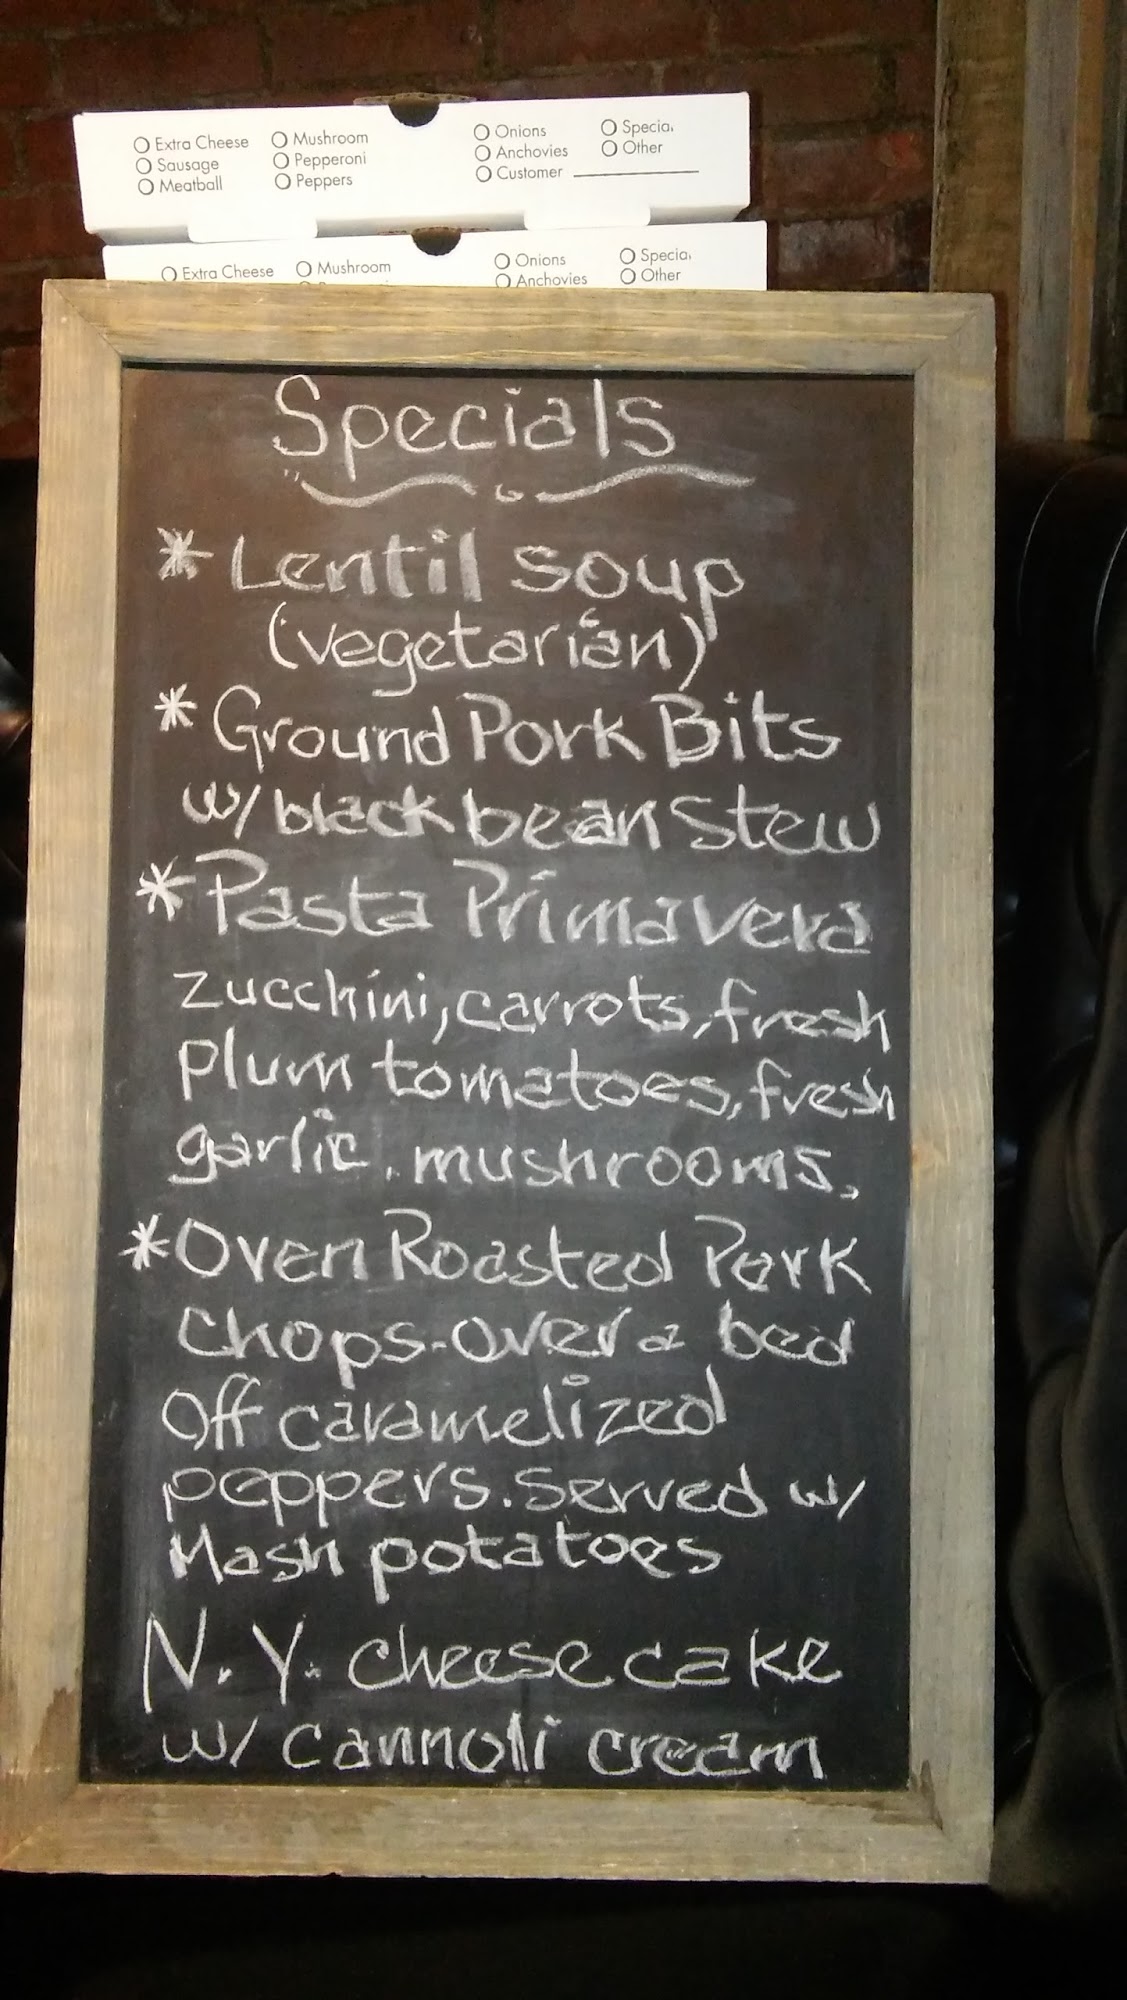 Extra Cheese Mushroom Onions Specia.
Sausage Pepperoni Anchovies Other
Meatball Peppers Customer
Extra Cheese Mushroom Onions Specia.
Anchovies Other
Specials
*Lentil soup
(vegetarian)
*Ground Pork Bits
w/ black bean stew
*Pasta Primavera
zucchini, carrots, fresh
plum tomatoes, fresh
garlic, mushrooms,
*Oven Roasted Pork
Chops-over a bed
Off caramelized
peppers. Served w/
Mash potatoes
N.Y. cheese cake
w/ cannoli cream